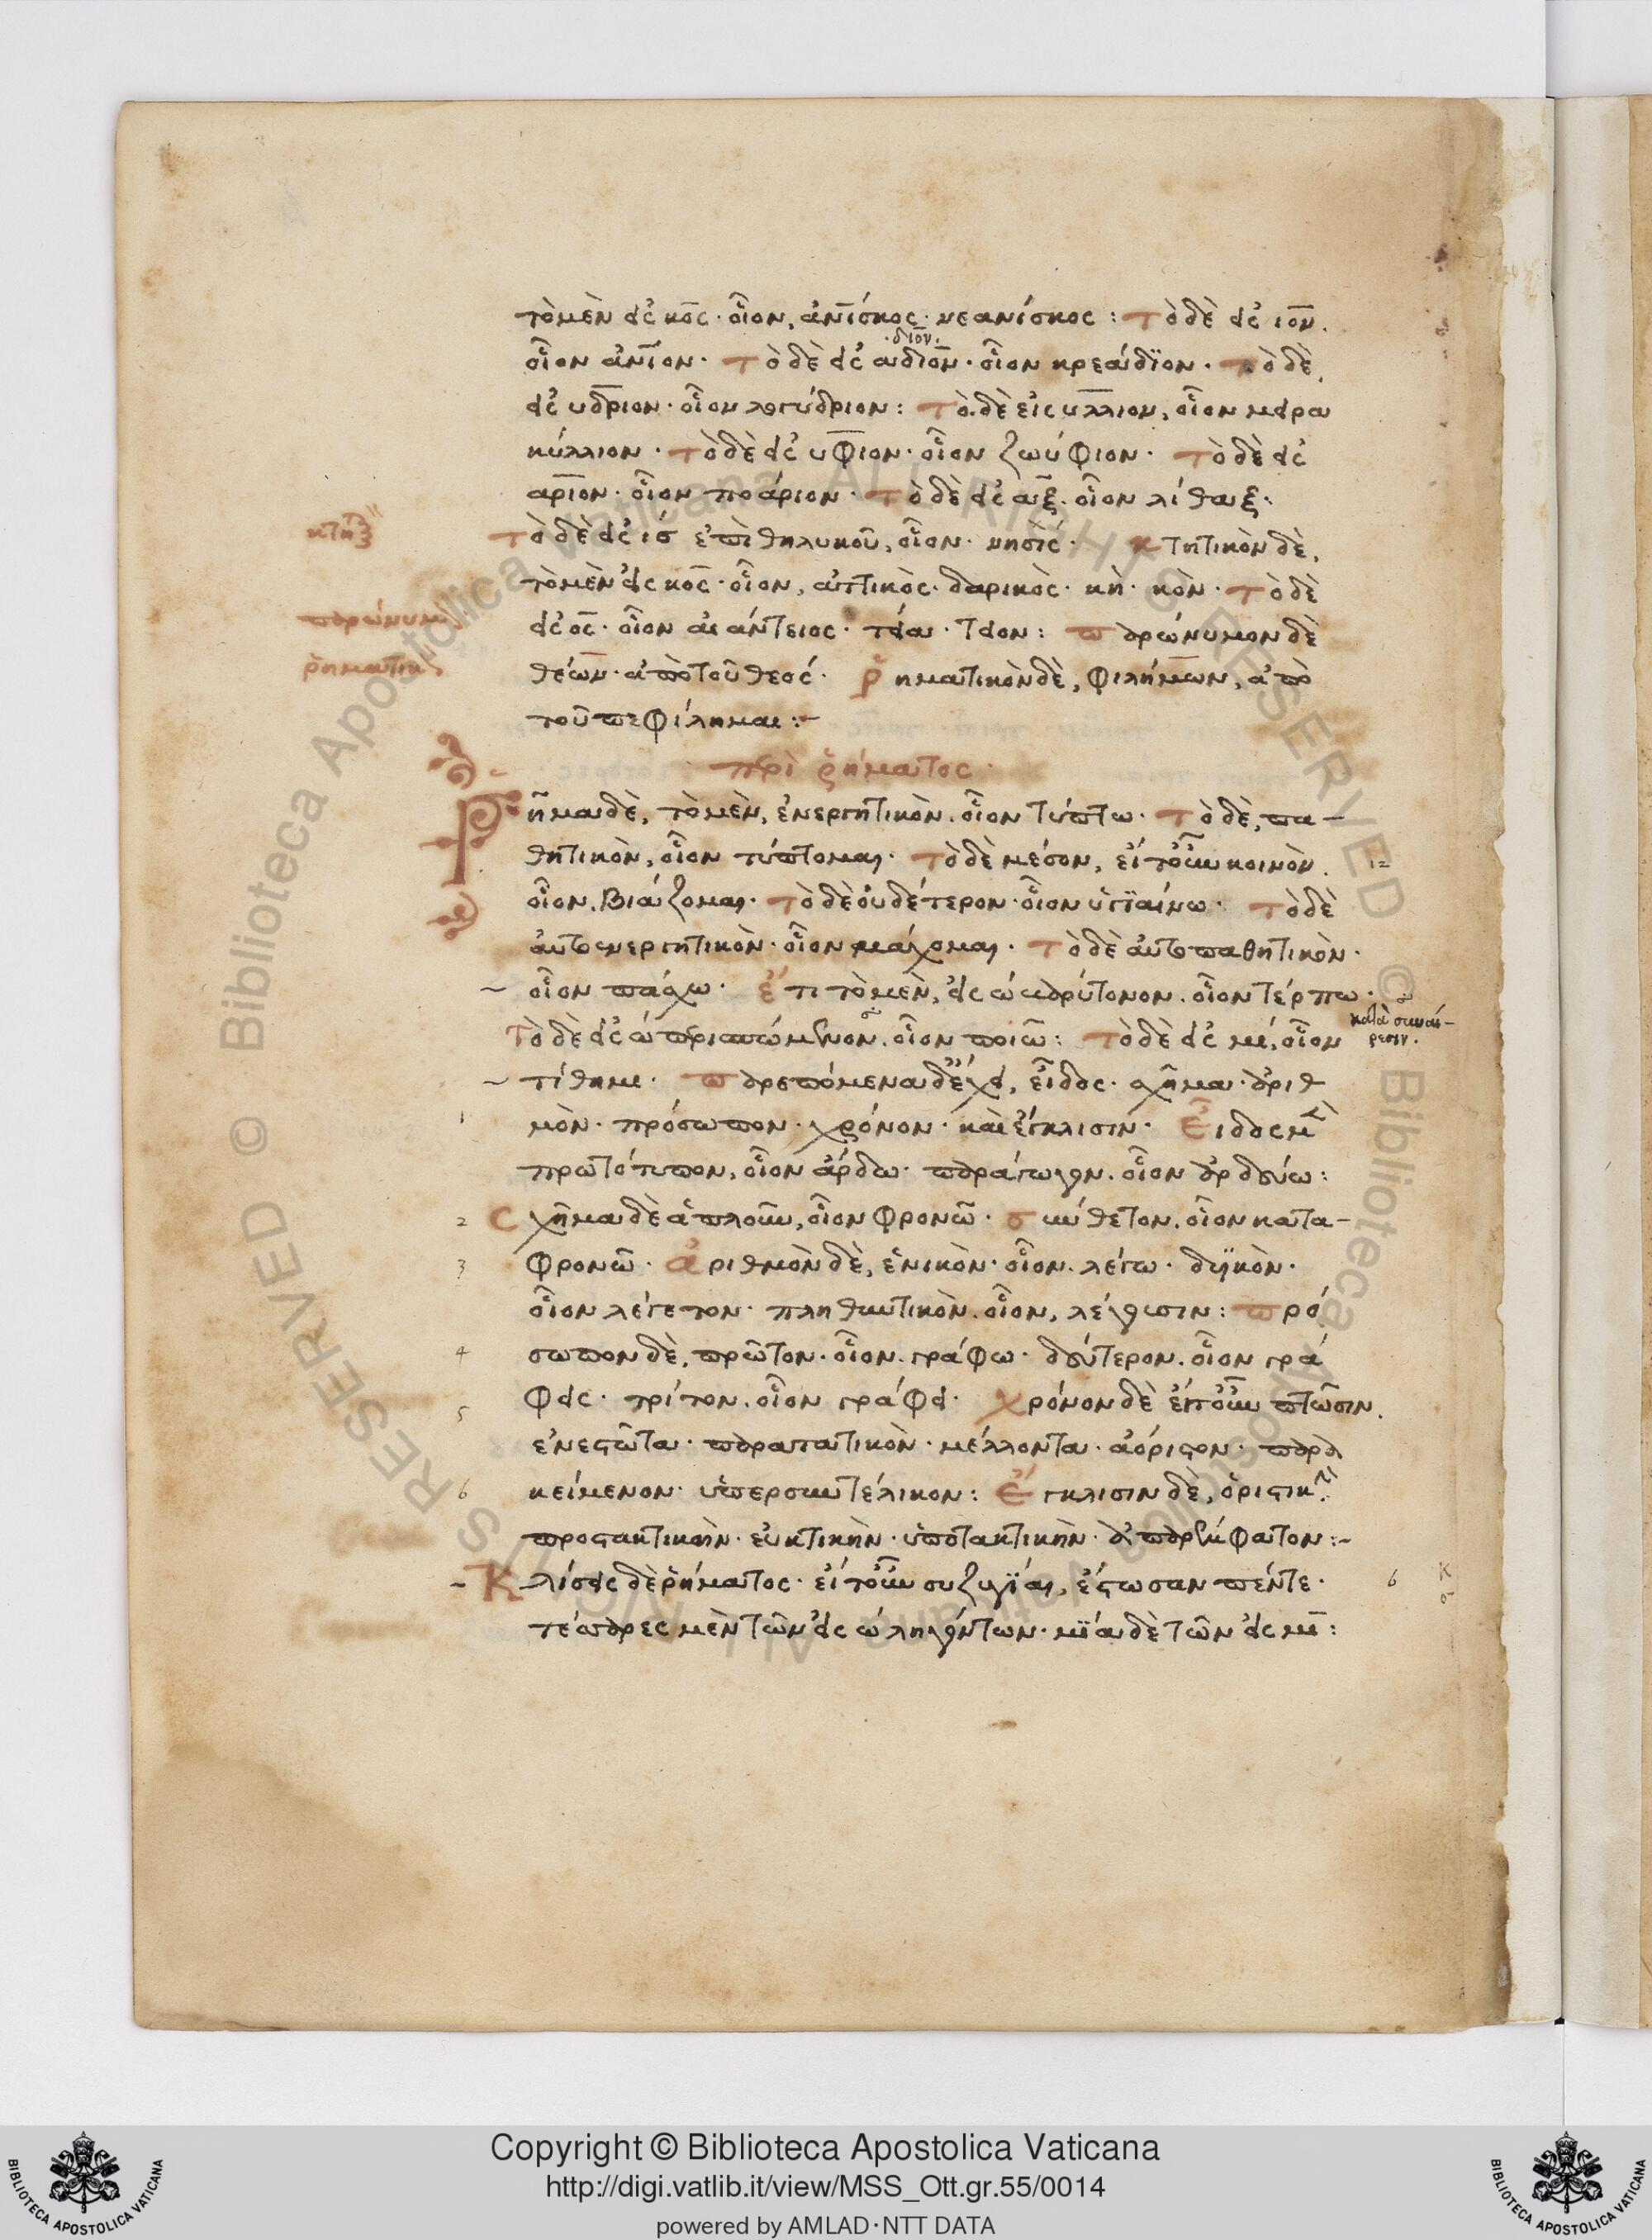 τὸ μὲν εἰς κο̄ς· οἷον, ἀνίσκος· νεανίσκος: τὸ δὲ εἰς ιο̄ν.
·διον·
οἷον ἀνίον· τὸ δὲ εἰς αδιο̄ν· οἷον κρεάδϊον· τὸ δὲ
εἰς υδριον· οἷον λογύδριον: τὸ δὲ εἰς υλλιον, οἷον μειρα
κύλλιον· τὸ δὲ εἰς υφιον· οἷον ζωύφιον· τὸ δὲ εἰς
αριον· οἷον ποάριον· τὸ δὲ εἰς αξ· οἷον λίθαξ·
τὸ δὲ εἰς ισ ἐπὶ θηλυκοῦ, οἷον· νησίς· κτητικὸν δὲ,
τὸ μὲν εἰς κο̄ς· οἷον, ἀττικὸς· δαρικὸς· κὴ· κὸν· τὸ δὲ
παρώνυμ
εἰς ο̄ς· οἷον αἰάντειος· τεία· τειον: παρώνυμον δὲ
ῥηματικ
θέων· ἀπὸ τοῦ θεός· ῥηματικὸν δὲ, φιλήμων, ἀπὸ
τοῦ πεφίλημαι:-
περὶ ῥήματος·
Ῥῆμα δὲ, τὸ μὲν, ἐνεργητικὸν. οἷον τύπτω· τὸ δὲ, πα-
θητικὸν, οἷον τύπτομαι· τὸ δὲ μέσον, εἴτουν κοινὸν.
οἷον. βιάζομαι· τὸ δὲ οὐδέτερον· οἷον ὑγϊαίνω· τὸ δὲ
αὐτοενεργητικὸν· οἷον μάχομαι· τὸ δὲ αὐτοπαθητικὸν·
οἷον πάσχω· ἔτι τὸ μὲν, εἰς ώ βαρύτονον. οἷον τέρπω·
κατὰ συναί-
ρεσιν.
τὸ δὲ εἰς ώ περισπώμενον. οἷον ποιῶ: τὸ δὲ εἰς μί, οἷον
τίθημι· παρεπόμενα δὲ ἔχει, εἶδος· σχῆμα· ἀριθ
1 μὸν· πρόσωπον· χρόνον· καὶ ἔγκλισιν· εἶδος μὲν
πρωτότυπον, οἷον ἄρδω· παράγωγον. οἷον ἀρδεύω:
2 Σχῆμα δὲ ἁπλοῦν, οἷον φρονῶ· σύνθετον. οἷον κατα-
3 φρονῶ· ἀριθμὸν δὲ, ἑνικὸν· οἷον. λέγω· δυϊκὸν·
οἷον λέγετον· πληθυντικὸν. οἷον, λέγουσιν: πρό
4 σωπον δὲ, πρῶτον· οἷον. γράφω· δεύτερον. οἷον γρά
5 φεις· τρίτον. οἷον γράφει· χρόνον δὲ ἤγουν πτῶσιν.
ἐνεστῶτα· παρατατικὸν· μέλλοντα· ἀόριστον· παρα
6 κείμενον· ὑπερσυντέλικον: ἔγκλισιν δὲ, ὁριστικὴν·
προστακτικὴν· εὐκτικὴν· ὑποτακτικὴν· ἀπαρέμφατον:-
Κλίσεις δὲ ῥήματος· εἴτουν συζυγΐαι, ἔστωσαν πέντε·
τέσσαρες μὲν τῶν εἰς ώ ληγόντων· μΐα δὲ τῶν εἰς μῑ:
Copyright © Biblioteca Apostolica Vaticana
http://digi.vatlib.it/view/MSS_Ott.gr.55/0014
powered by AMLAD·NTT DATA